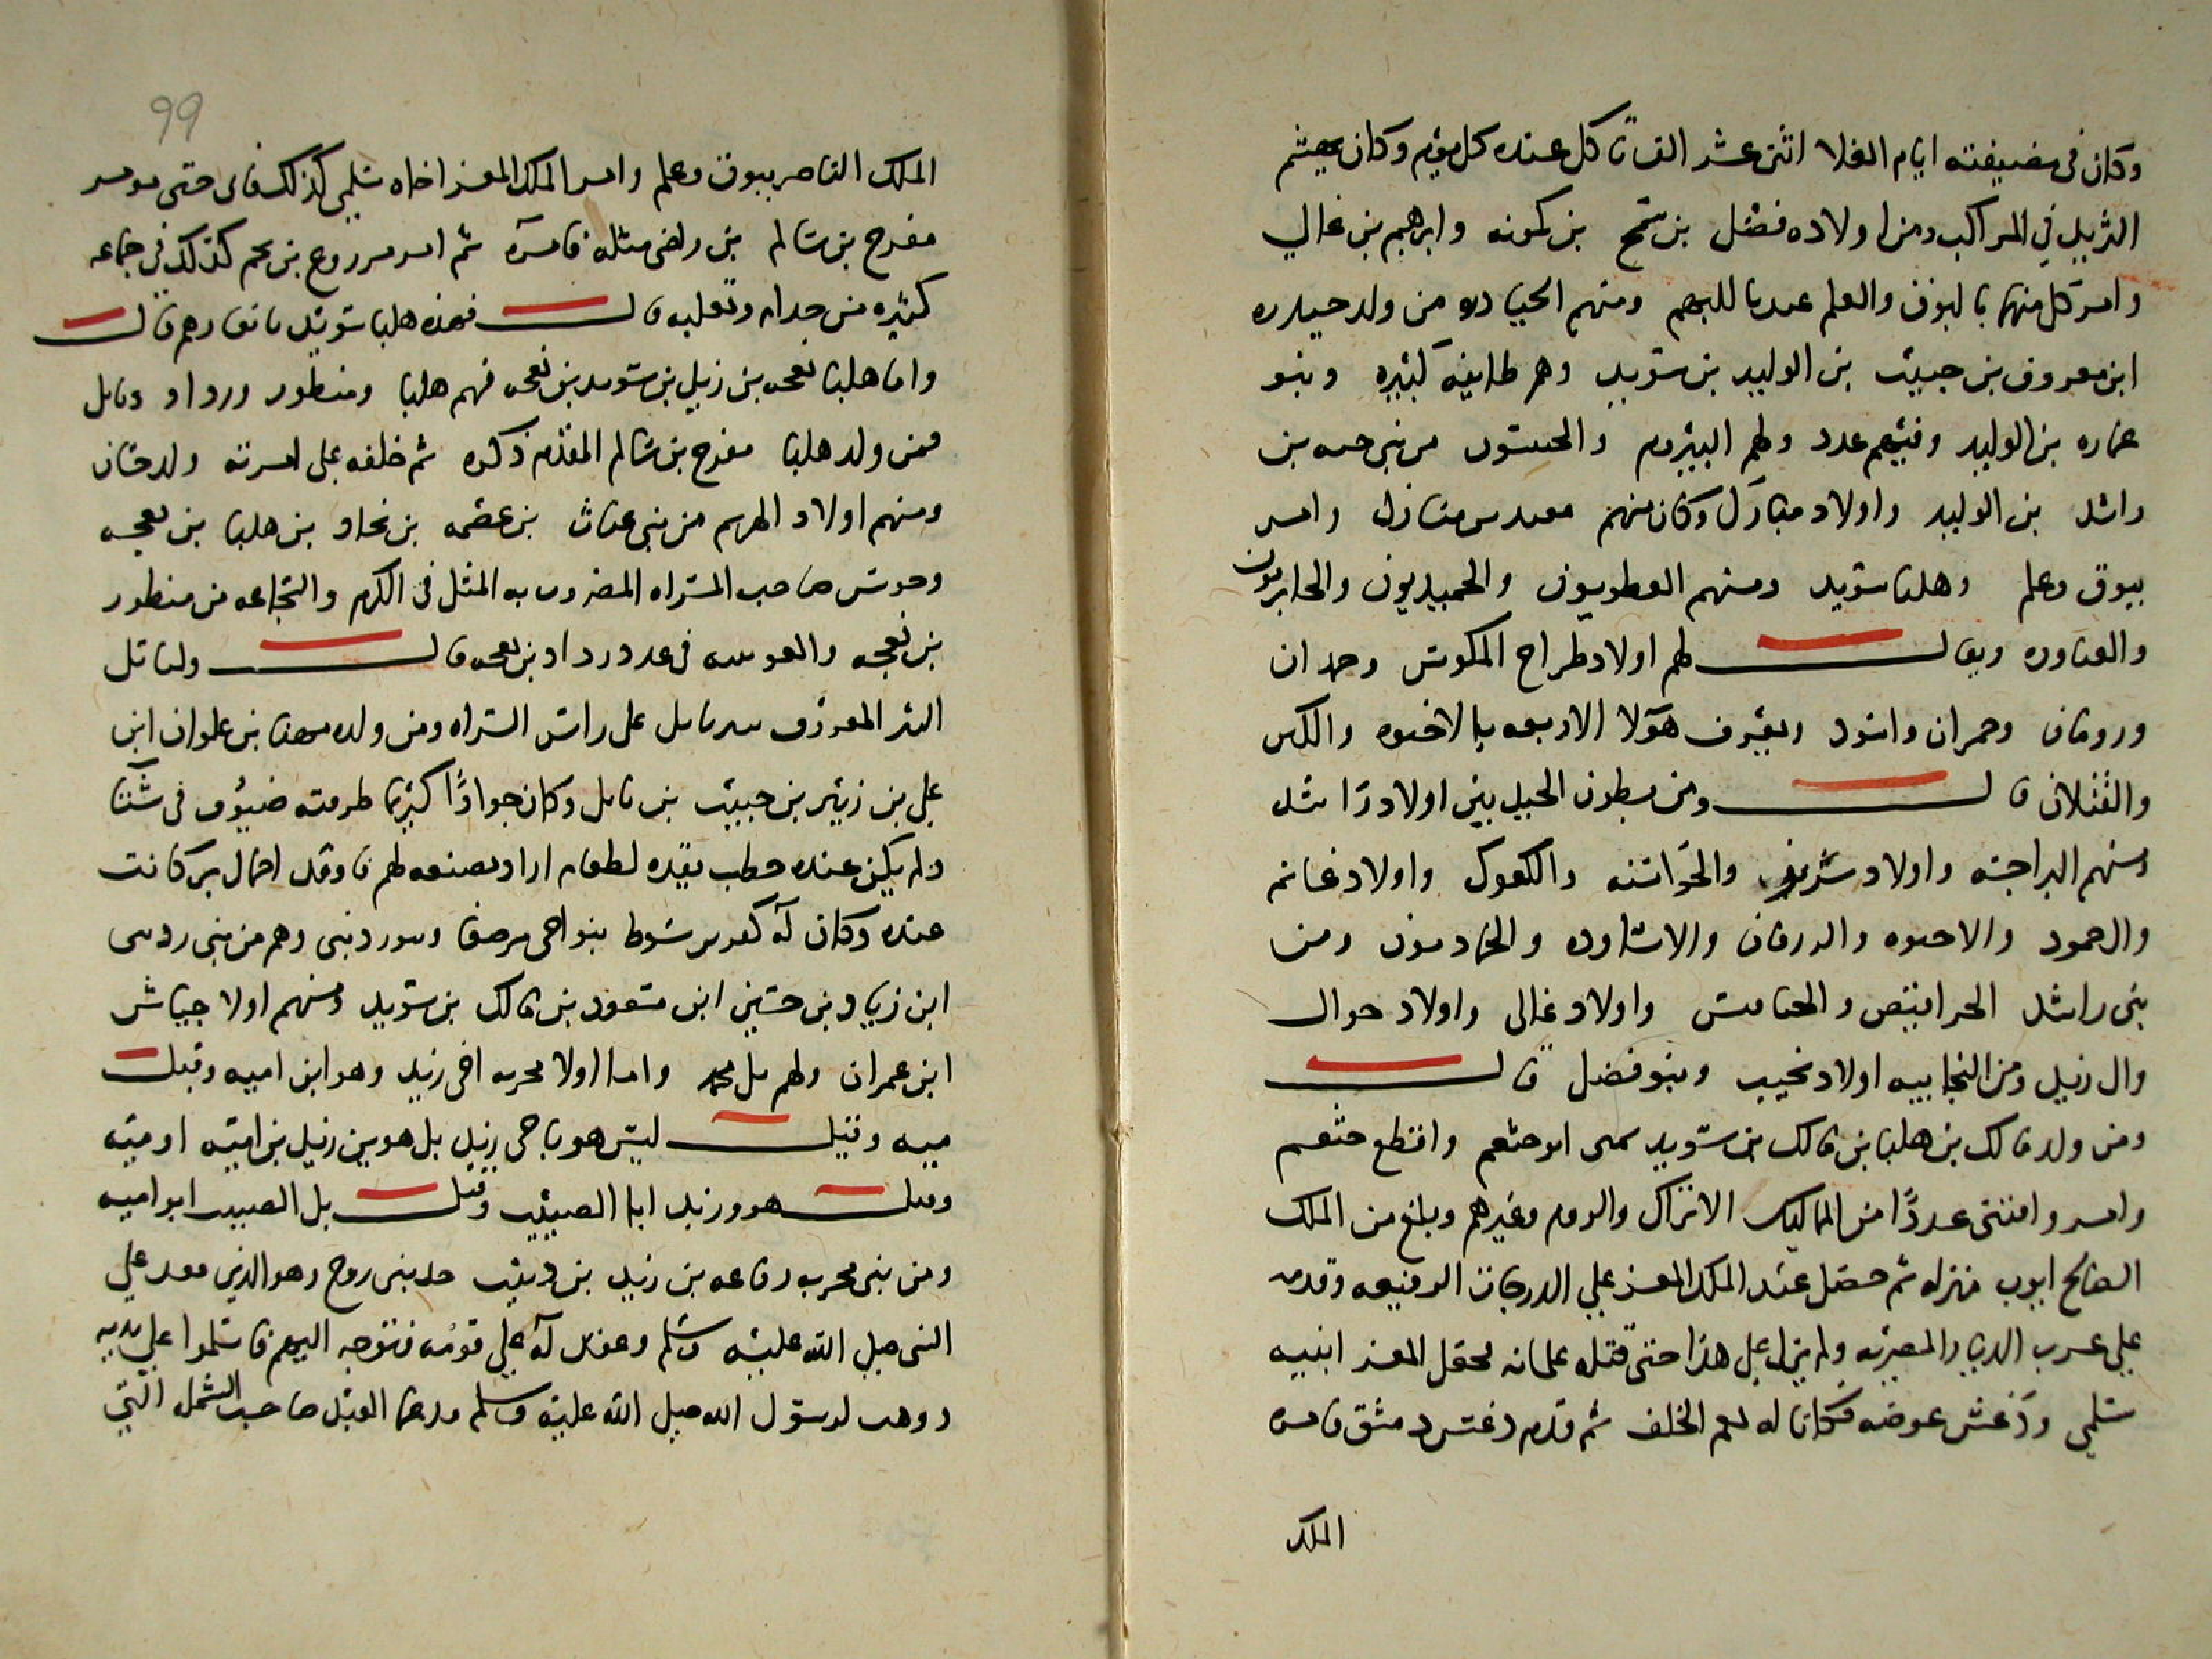 وكان فى مضيفته ايام الغلا اثنى عشر الف تاكل عنده كل يوم وكان يهشم
الثريد في المراكب ومن اولاده فضل بن شمخ بن كمونه وابرهيم بن غالي
وامر كل منهما بالبوق والعلم ومنهم من ولد حيدره
ابن معروف بن حبيب بن الوليد بن سويد وهم طايفه كبيره وبنو
عماره بن الوليد وفيهم عدد ولهم من بنى بن
راشد بن الوليد واولاد منازل وكان منهم منازل وامر
ببوق وعلم وهلبا سويد ومنهم العطويون والحميديون والجابريون
والغتاوره ويقال لهم اولاد طراح المكوس وحمدان
ورومان وحمران واسود ويعرف هولا الاربعه بالاخيوه
قال ومن بطون الحبيديين اولاد راشد
ومنهم البراجسه واولاد والكعوك واولاد غانم
وال حمود والاخيوه والزرقان والاساوره ومن
بنى راشد الحراقيص والخنافيس واولاد غالى واولاد جوال
وال زيد ومن النجابيه اولاد نجيب وبنو فضل قال
ومن ولد مالك بن هلبا بن مالك بن سويد خثعم واقطع خثعم
وامر واقتنى عددًا من المماليك الاتراك والروم وغيرهم وبلغ من الملك
الصالح ايوب منزله ثم حصل عند الملك المعز على الدرجات الرفيعه وقدمه
على عرب الديار المصريه ولم يزل على هذا حتى قتله غلمانه فجعل المعز ابنيه
سلمى ودغش عوضه فكانا له نعم الخلف ثم قدم دغش دمشق فامره
الملك
99
الملك الناصر ببوق وعلم وامر الملك المعز اخاه سلمى كذلك
مفرج بن سالم بن راضى مثله فامره ثم امر مزروع بن نجم كذلك في جماعه
كثيره من جذام وثعلبه قال فهذه هلبا سويد قال
واما هلبا بعجه بن زيد بن سويد بن بعجه فمنهم هلبا ومنظور ورداد ونايل
فمن ولد هلبا مفرج بن سالم المقدم ذكره ثم خلفه على امرته ولده حسان
ومنهم اولاد الهرم من بنى غياث بن عصمه بن نجاد بن هلبا بن بعجه
وحوش صاحب السراه المضروب به المثل فى الكرم والشجاعه من منظور
بن بعجه فى عدد رداد بن بعجه قال ولنايل
البئر المعروف ببئر نايل على راس السراه ومن ولده مهنا بن علوان ابن
على بن زبير بن حبيب بن نايل وكان جوادًا كريما طرقته ضيوف فى شتا
ولم يكن عنده حطب يقده لطعام اراد يصنعه لهم فاوقد احمال بز كانت
عنده وكان له بنواحى مرصفا وهم من بنى ردينى
ابن زياد بن حسين ابن مسعود بن مالك بن سويد ومنهم اولاد جياش
ابن عمران ولهم تل محمد واما اولاد محربه اخى زيد وهو ابن اميه وقيل
ميه وقيل ليس هو باخى زيد بل هو بن زيد بن اميه او ميه
وقيل هو وزيد ابنا الضبيب وقيل بل الضبيب ابو اميه
ومن بنى محربه رفاعه بن زيد بن ذبيب جد بنى روح وهو الذى وفد على
النبى صلى الله عليه وسلم وعقد له على قومه فتوجه اليهم فاسلموا على يديه
ووهب لرسول الله صلى الله عليه وسلم مدعما العبد صاحب الشمله التى